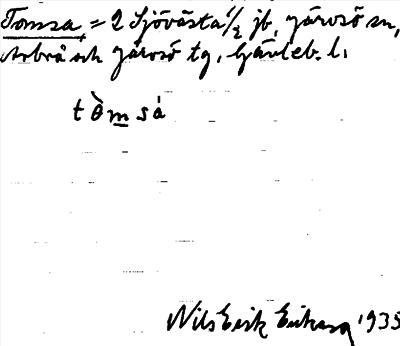 Tomsa = 2 Sjövästa 1/2 jb, Järvsö sn,
Arbrå och Järvsö tg, Gävleb. l.
tòmsá
Nils Erik Eriksson 1935